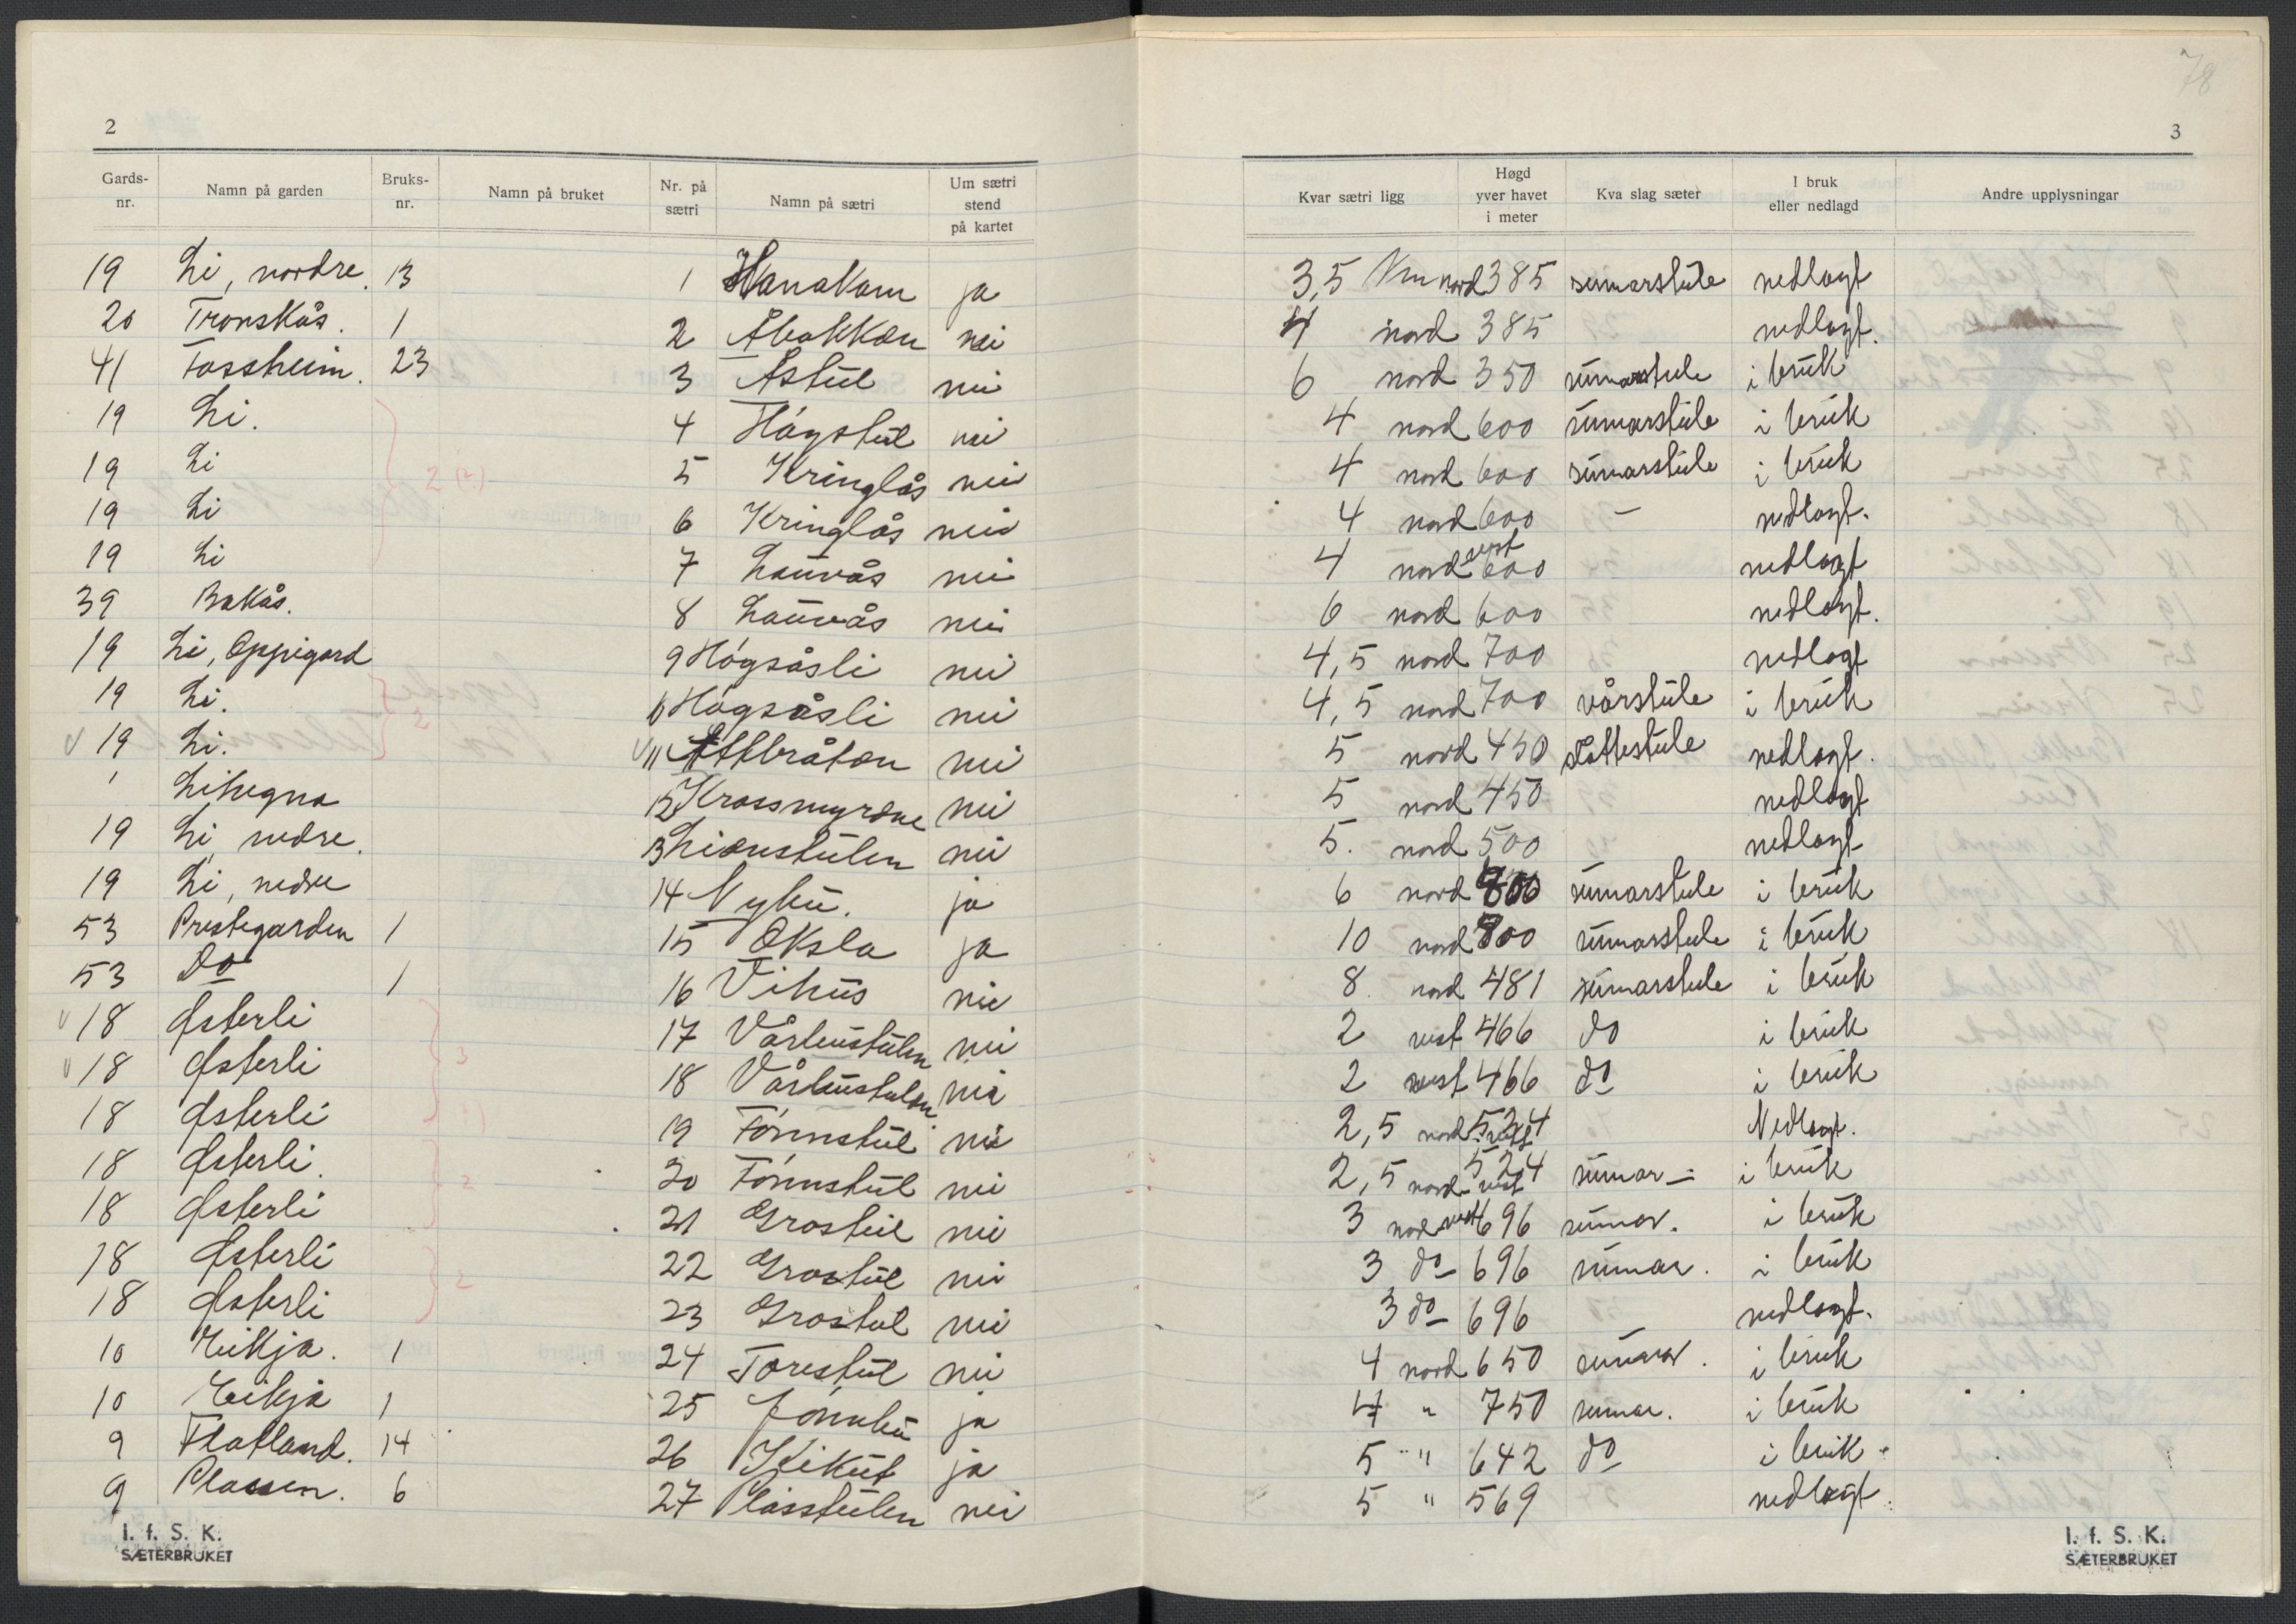 78
2
3
Gards-nr. Namn på garden Bruks-nr. Namn på bruket Nr. på sætri Namn på sætri Um sætri stend på kartet Kvar sætri ligg Høgd yver havet i meter Kva slag sæter I bruk eller nedlagd Andre upplysningar
19 Li, nordre. 13 1 ja 3,5 Km nord 385 sumarstule nedlagt
20 Tronskås. 1 2 Åbakkæn nei 4 nord 385 nedlagt.
41 Fossheim. 23 3 Åstul nei 6 nord 350 sumarstule i bruk
19 Li. 4 Høgstul nei 4 nord 600 sumarstule i bruk
19 Li 2 (2) 5 Kringlås nei 4 nord 600 sumarstule i bruk
19 Li 6 Kringlås nei 4 nord 600 — nedlagt.
19 Li 7 Lauvås nei 4 nord vest 600 nedlagt
39 Bakås. 8 Lauvås nei 6 nord 600 nedlagt.
19 Li, Oppigard 9 Høgsåsli nei 4,5 nord 700 nedlagt
19 Li. 2 10 Høgsåsli nei 4,5 nord 700 vårstule i bruk
v 19 Li. v 11 nei 5 nord 450 slåttestule nedlagt.
' Lihegna 12 Krossmyrane nei 5 nord 450 nedlagt
19 Li nedre. 13 Liænstulen nei 5. nord 500 nedlagt
19 Li, nedre 14 Nybu. ja 6 nord sumarstule i bruk
53 Prestegarden 1 15 Oksla ja 10 nord 800 sumarstule i bruk
53 Do 1 16 Vihus nei 8 nord 481 sumarstule i bruk
v 18 Østerli 17 Vårbustulen nei 2 vest 466 do i bruk
v 18 Østerli 3 18 Vårbustulen nei 2 vest 466 do i bruk
18 Østerli 19 Fónnstul nei 2,5 nord vest 524 Nedlagt.
18 Østerli. 2 20 Fónnstul nei 2,5 nord-vest 524 sumar — i bruk
18 Østerli 21 Grostul nei 3 nord vest 696 sumar. i bruk
18 Østerli 2 22 Grostul nei 3 do 696 sumar. i bruk
18 Østerli 23 Grostul nei 3 do 696 nedlagt.
10 Eikja. 1 24 Torestul nei 4 nord 650 sumar. i bruk
10 Eikja 1 25 Fónnbu ja 4 " 750 sumar. i bruk
9 Flatland. 14 26 Kikut ja 5 " 642 do i bruk.
9 Plassen. 6 27 Plasstulen nei 5 " 569 nedlagt.
I. f. S. K.
SÆTERBRUKET
I. f. S. K.
SÆTERBRUKET